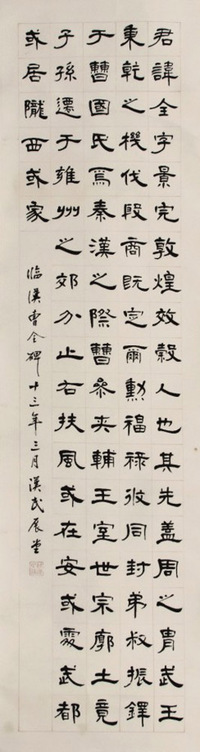 君諱全字景完敦煌效穀人也其先蓋周之胄武王
秉乾之機伐殷商既定爾勳福祿攸同封弟叔振鐸
于曹國氏焉秦漢之際曹參夾輔王室世宗廓土竟
子孫遷于雍州之郊分止右扶風或在安或處武都
或居隴西或家
臨漢曹全碑十三年三月漢武展堂